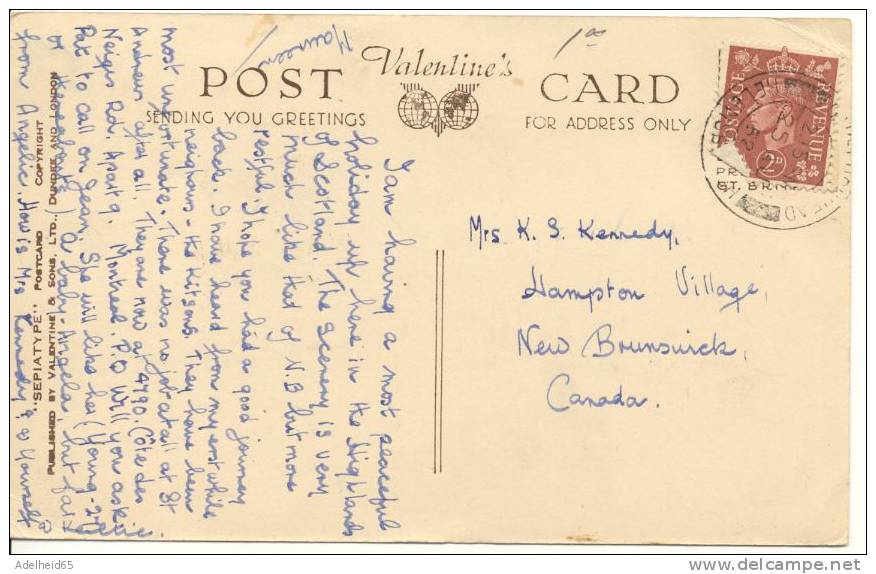 Valentine's
POST CARD
SENDING YOU GREETINGS
FOR ADDRESS ONLY
I am having a most peaceful
holiday up here in the Highlands
of Scotland. The scenery is very
much like that of N.B but more
restful. I hope you had a good journey
back. I have heard from my erstwhile
neighbours - the Kitsons. They have been
most unfortunate. There was no job at all at St
Andrews after all. They are now at 4790. Côte des
Neiges Rd. Apart 9. Montreal. P.Q Will you ask
Pat to call on Jean. She will like her (Young - 24
or thereabouts) a baby - Angela, but far
from Angelic. How is Mrs Kennedy & yourself?
Maureen
"SEPIATYPE" POSTCARD COPYRIGHT
PUBLISHED BY VALENTINE & SONS, LTD., DUNDEE AND LONDON
POSTAGE REVENUE
2D
Mrs. K. S. Kennedy,
Hampton Village,
New Brunswick,
Canada.
Adelheid65
delcampe.net